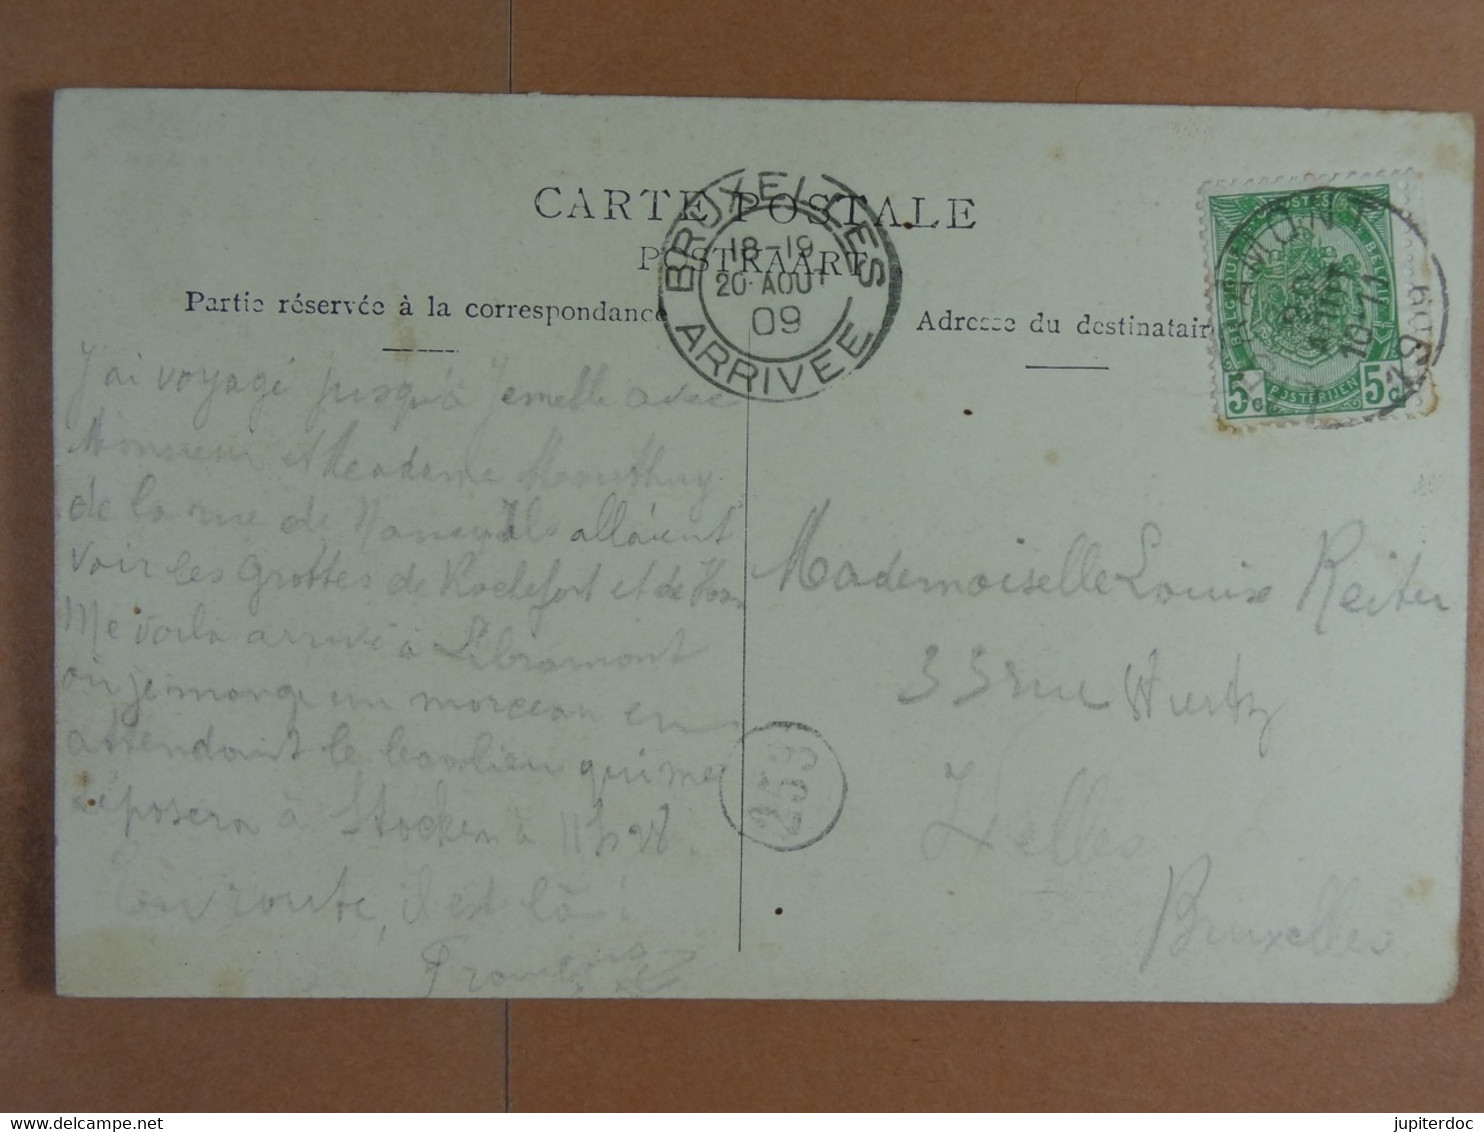 CARTE POSTALE
POSTKAART
Partie réservée à la correspondance
Adresse du destinataire
BRUXELLES
18-19
20 AOUT
09
ARRIVEE
LIBRAMONT
20 AOUT
10-11
1909
POSTES
BELGIQUE BELGIË
5c POSTERIJEN 5c
J'ai voyagé jusqu'à Jemelle avec
Monsieur et Madame
de la rue de Ils allaient
voir les grottes de Rochefort et de Han
Me voilà arrivé à Libramont
où je mange un morceau en
attendant le qui me
déposera à Stocken à 11h28.
En route, il est là!
François
Mademoiselle Louise Reiter
33 rue Wiertz
Ixelles
Bruxelles
253
jupiterdoc